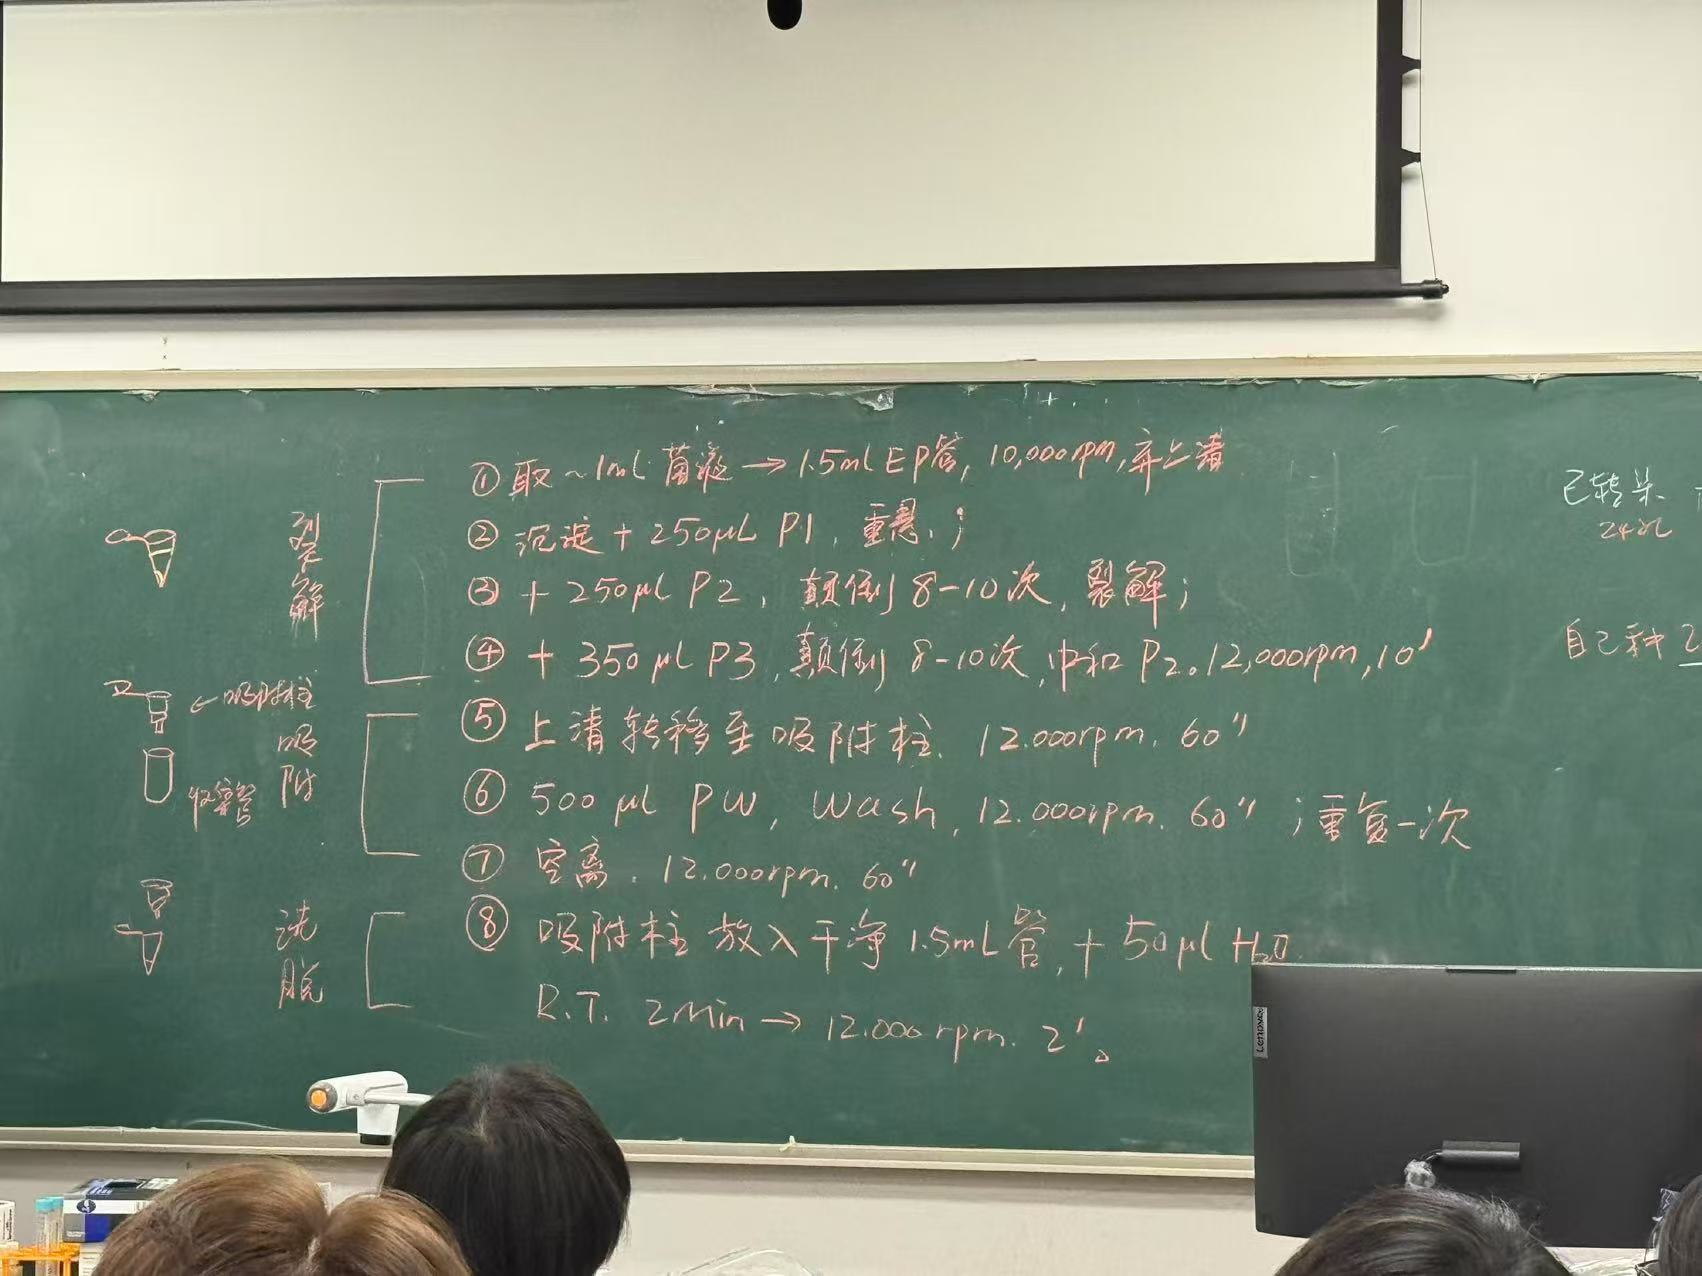 ① 取 ~1mL 菌液 → 1.5mL EP管, 10,000rpm, 弃上清
② 沉淀 + 250μL P1, 重悬;
③ + 250μL P2, 颠倒 8-10次, 裂解;
④ + 350μL P3, 颠倒 8-10次, 中和 P2。12,000rpm, 10'
⑤ 上清转移至吸附柱. 12.000rpm. 60"
⑥ 500μl PW, Wash, 12.000rpm. 60" ; 重复一次
⑦ 空离. 12.000rpm. 60"
⑧ 吸附柱放入干净1.5mL管, + 50μl H₂O
R.T. 2Min → 12.000rpm. 2'。
裂解
← 吸附柱
吸附
收集管
洗脱
已转染
自己种 2
Lenovo